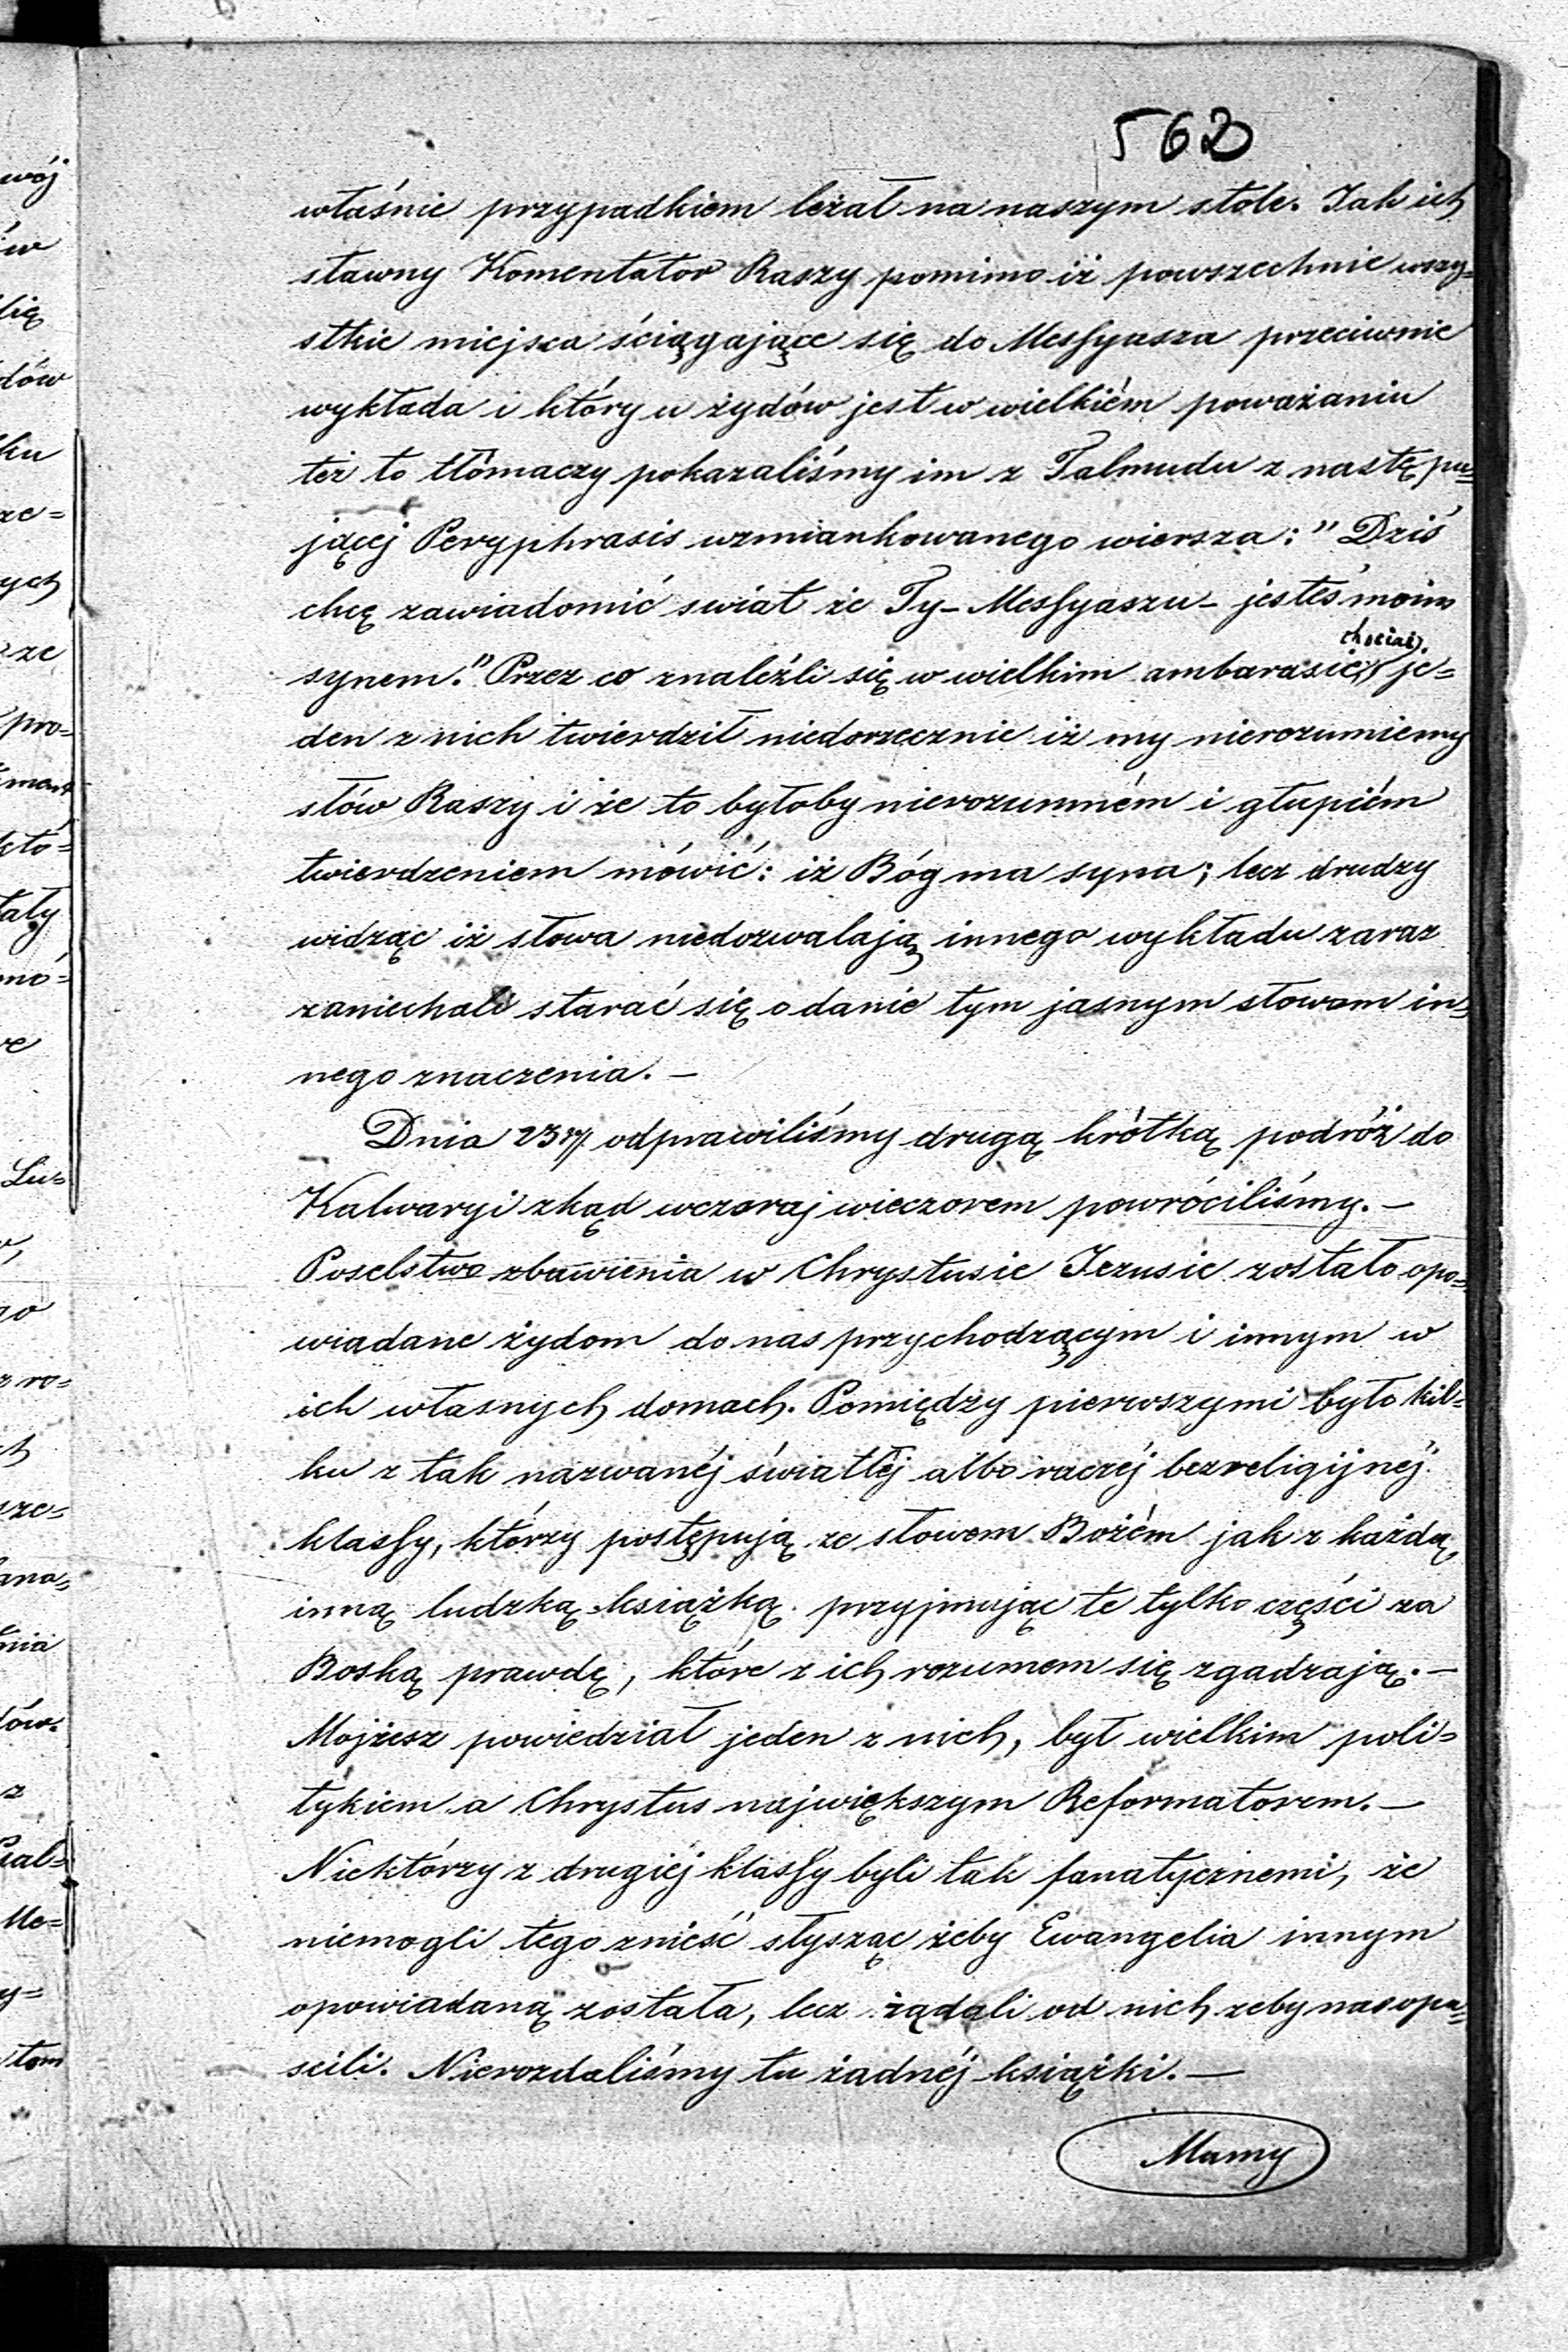 562
właśnie przypadkiem leżał na naszym stole. Jak ich
sławny Komentator Raszy pomimo iż powszechnie wszy=
stkie miejsca ściągające się do Messyasza przeciwnie
wykłada i który u żydów jest w wielkiém poważaniu
też to tłómaczy pokazaliśmy im z Talmudu z następu=
jącej Peryphrasis wzmiankowanego wiersza: "Dziś
chcę zawiadomić swiat że Ty - Messyaszu - jesteś moim
synem." Przez co znaleźli się w wielkim ambarasie, chociaż je=
den z nich twierdził niedorzecznie iż my nierozumiemy
słów Raszy i że to byłoby nierozumném i głupiém
twierdzeniem mówić: iż Bóg ma syna; lecz drudzy
widząc iż słowa niedozwalają innego wykładu zaraz
zaniechali starać się o danie tym jasnym słowom in=
nego znaczenia. —
Dnia 23 odprawiliśmy drugą krótką podróż do
Kalwaryi zkąd wczoraj wieczorem powróciliśmy. —
Poselstwo zbawienia w Chrystusie Jezusie zostało opo=
wiadane żydom do nas przychodzącym i innym w
ich własnych domach. Pomiędzy pierwszymi było kil=
ku z tak nazwanéj światłéj albo raczéj bezreligijnéj
klassy, którzy postępują ze słowem Bożém jak z każdą
inną ludzką książką przyjmując te tylko części za
Boską prawdę, które z ich rozumem się zgadzają. —
Mojżesz powiedział jeden z nich, był wielkim poli=
tykiem a Chrystus największym Reformatorem. —
Niektórzy z drugiéj klassy byli tak fanatycznemi, że
niemogli tego znieść słysząc żeby Ewangelia innym
opowiadaną została, lecz żądali od nich żeby nas opu=
scili. Nierozdaliśmy tu żadnéj książki. —
Mamy